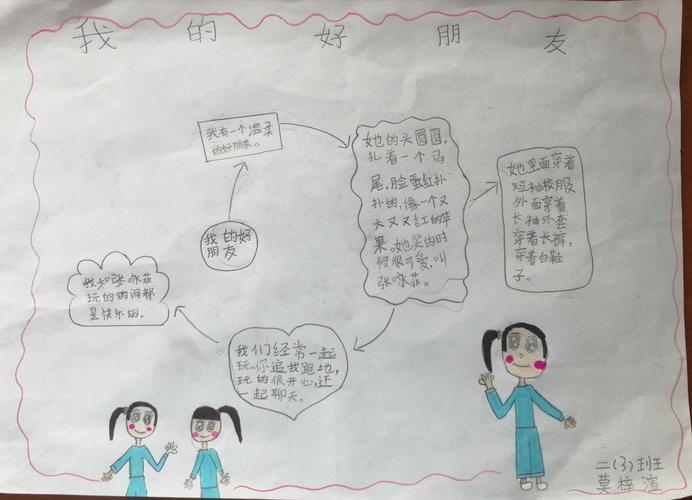 我的好朋友
我的好
朋友
我有一个温柔
的好朋友。
她的头圆圆,
扎着一个马
尾,脸蛋红扑
扑的,像一个又
大又又红的苹
果。她笑的时
候很可爱,叫
张咏菲。
她里面穿着
短袖校服
外面穿着
长袖外套
穿着长裤,
穿着白鞋
子。
我们经常一起
玩,你追我跑地,
玩的很开心,还
一起聊天。
我和张咏菲
玩的时间都
是快乐的。
二(3)班
莫梓渲